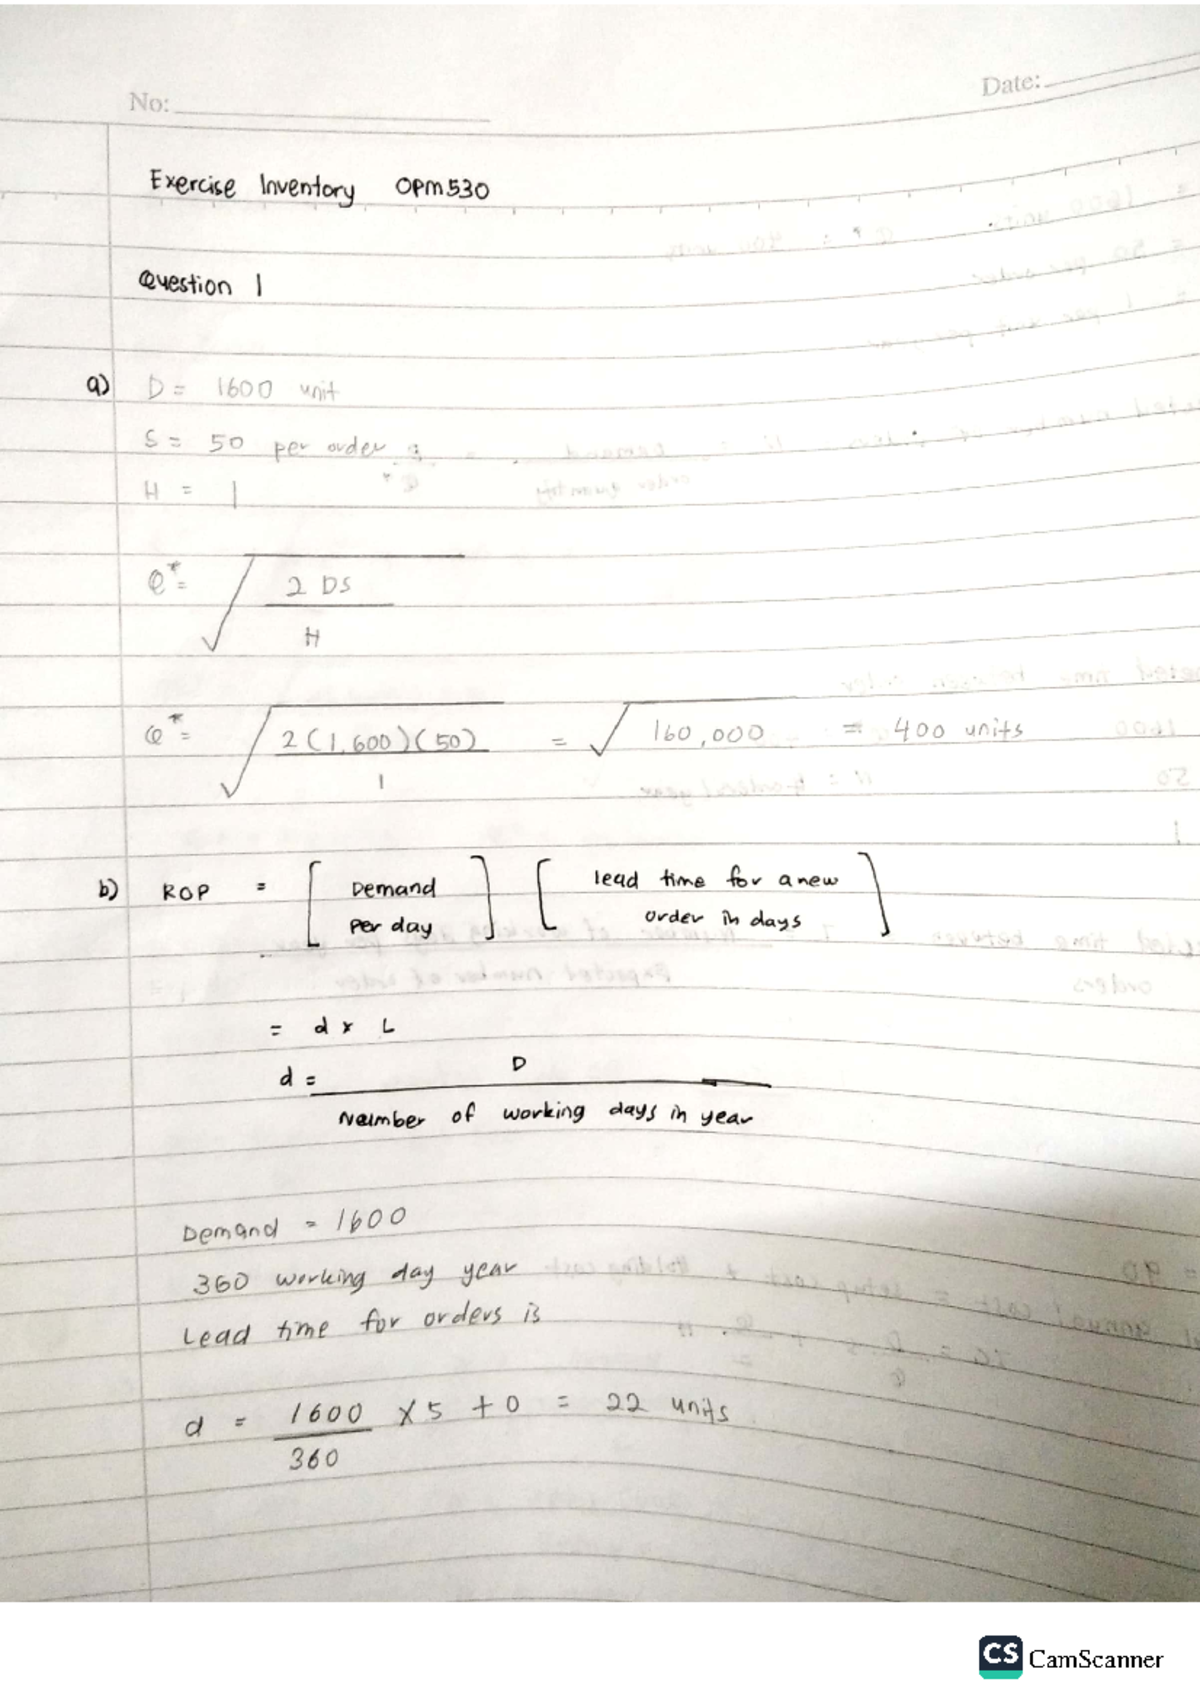 No:
Date:
Exercise Inventory OPM530
Question 1
a) D = 1600 unit
S = 50 per order
H = 1
Q* = √ 2 DS
H
Q* = √ 2(1,600)(50) = √ 160,000 = 400 units
1
b) ROP = [ Demand per day ] [ lead time for a new order in days ]
= d x L
d = D
Number of working days in year
Demand = 1600
360 working day year
Lead time for orders is
d = 1600 x 5 + 0 = 22 units
360
CS CamScanner